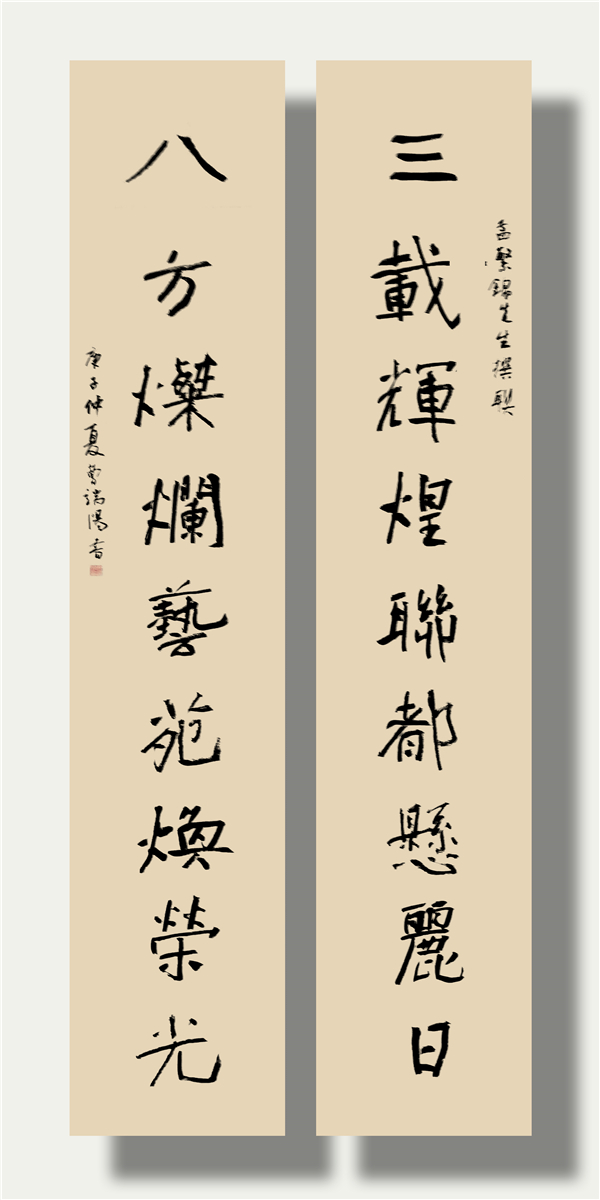 三載輝煌聯都懸麗日
繫錫先生撰聯
八方燦爛藝苑煥榮光
庚子仲夏曾端陽書